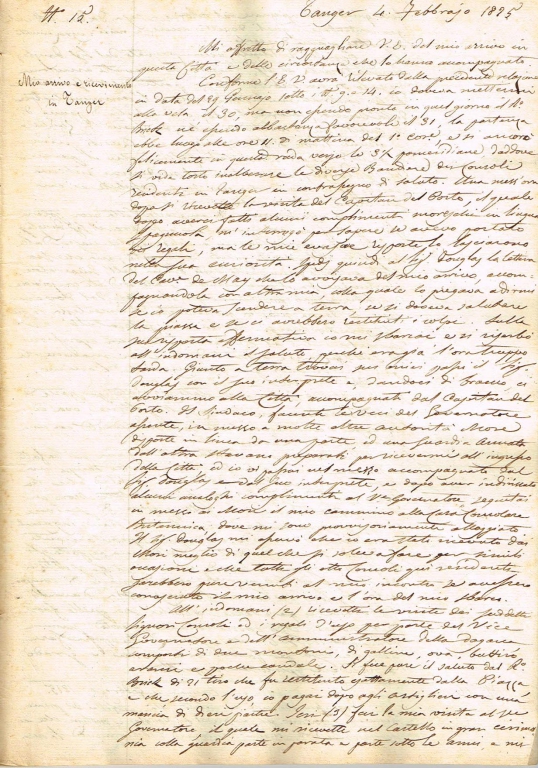 N° 12.
Tanger 4. Febbrajo 1825
Mio arrivo e ricevimento
in Tanger
Mi affretto di ragguagliare V. E. del mio arrivo in
questa Città e delle circostanze che lo hanno accompagnato.
Conforme l'E. V. avrà rilevato dalla precedente relazione
in data del 29 Gennajo sotto i N. 9 e 14. io doveva mettermi
alla vela il 30, ma non essendo pronto in quel giorno il R.
Brick nè essendo abbastanza favorevole il 31, la partenza
ebbe luogo alle ore 11. di mattina del 1° Cor. e si ancorò
felicemente in questa rada verso le 3½ pomeridiane, daddove
si vide tosto inalberare le diverse Bandiere dei Consoli
residenti in Tanger in contrassegno di saluto. Una mezz'ora
dopo si ricevette la visita del Capitan del Porto, il quale
dopo avermi fatto alcuni complimenti moreschi in lingua
spagnuola, m'interrogò per sapere se avevo portato
regali, ma le mie evasive risposte lo lasciarono
nella sua curiosità. Spedj quindi al Sig. Douglas la lettera
del Cav. de May che lo avvisava del mio arrivo accom-
pagnandola con altra mia colla quale lo pregava a dirmi
se io poteva scendere a terra, se si doveva salutare
la piazza e se ci avrebbero restituiti i colpi. Sulla
sua risposta affermativa io mi sbarcai e si riserbò
all'indomani il saluto, perchè era già l'ora troppo
tarda. Giunto a terra trovai sul molo il Sig.
Douglas con il suo interprete e, dandoci di braccio ci
avviammo alla Città, accompagnati dal Capitan del
Porto. Il Sindaco, facente le veci del Governatore
assente, in mezzo a molte altre autorità More
disposte in linea da una parte, ed una Guardia Armata
dall'altra stavano preparati per ricevermi all'ingresso
della Città, ed io vi passai nel mezzo accompagnato dal
Sig. Douglas e dal suo interprete, e dopo aver indirizzato
alcuni analoghi complimenti al Vice Governatore seguitai
in mezzo ai Mori il mio cammino alla Casa Consolare
Britannica, dove mi sono provvisoriamente alloggiato
Il Sig. Douglas mi assicurò che io era stato ricevuto dai
Mori meglio di quel che si soleva fare per simili
occasioni e che tutti gli altri Consoli qui residenti
sarebbero pure venuti al mio incontro se avessero
conosciuto il mio arrivo e l'ora del mio sbarco.
All'indomani (2) ricevetti le visite dei suddetti
signori Consoli ed i regali d'uso per parte del Vice
Governatore e dell'amministratore delle Dogane
composti di due montoni, di galline, ova, buttiro
aranci e poche candele. Si fece pure il saluto dal R.
Brick di 21 tiro che fu restituito esattamente dalla Piazza
e che secondo l'uso io pagai dopo agli artiglieri con una
mancia di dieci piastre. Jeri (3) feci la mia visita al Vice
Governatore il quale mi ricevette nel Castello in gran cerimo-
nia colla guardia parte in parata e parte sotto le armi, e mi